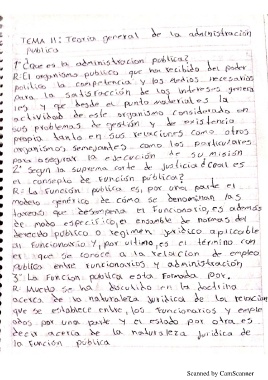 TEMA 11: Teoria general de la administración
publica
1° ¿Que es la administracion publica?
R: El organismo publico que ha recibido del poder
politico la competencia y los medios necesarios
para la satisfacción de los intereses genera
les y que desde el punto material es la
actividad de este organismo considerada en
sus problemas de gestión y de existencia
propia tanto en sus relaciones como otros
organismos semejantes como los particulares
para asegurar la ejecución de su misión
2° Segun la suprema corte de justicia ¿Cual es
el concepto de Función publica?
R: La Función publica es, por una parte el
modelo generico de cómo se denominan las
tareas que desempeña el Funcionario, es además
de modo especifico, el ensamble de normas del
derecho publico o regimen juridico aplicable
al Funcionario y, por ultimo, es el término con
el que se conoce a la relacion de empleo
publico entre Funcionarios y administracion
3° La Funcion publica esta Formada por.
R: Mucho se ha discutido en la doctrina
acerca de la naturaleza juridica de la relación
que se establece entre, los Funcionarios y emple
ados por una parte y el estado por otra es
decir acerca de la naturaleza juridica de
la función publica
Scanned by CamScanner